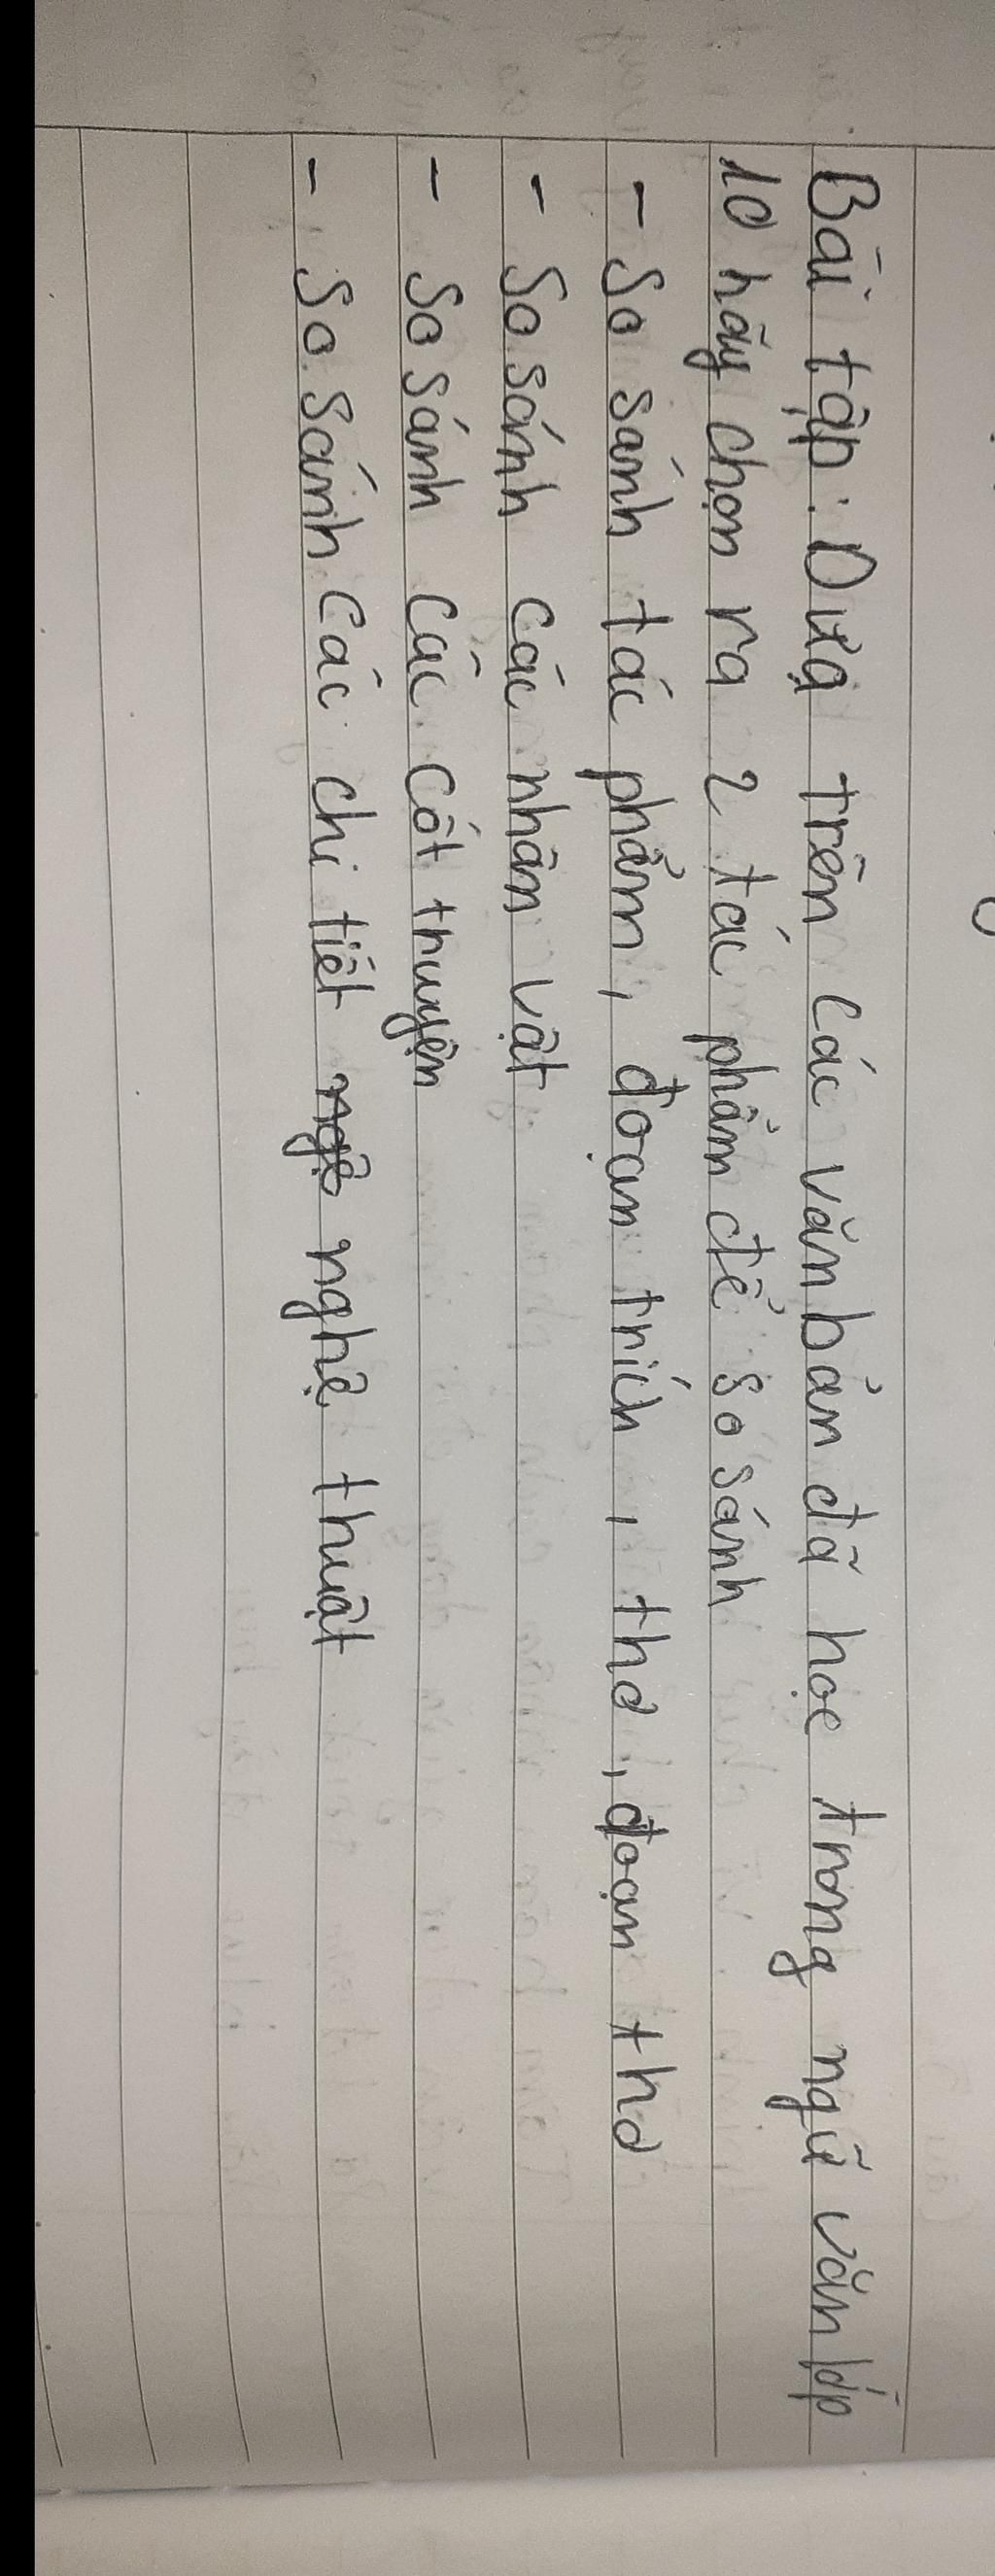 Bài tập: Dựa trên các văn bản đã học trong ngữ văn lớp
10 hãy chọn ra 2 tác phẩm để so sánh
- So sánh tác phẩm, đoạn trích, thơ, đoạn thơ
- So sánh các nhân vật
- So sánh các cốt truyện
- So sánh các chi tiết nghệ thuật